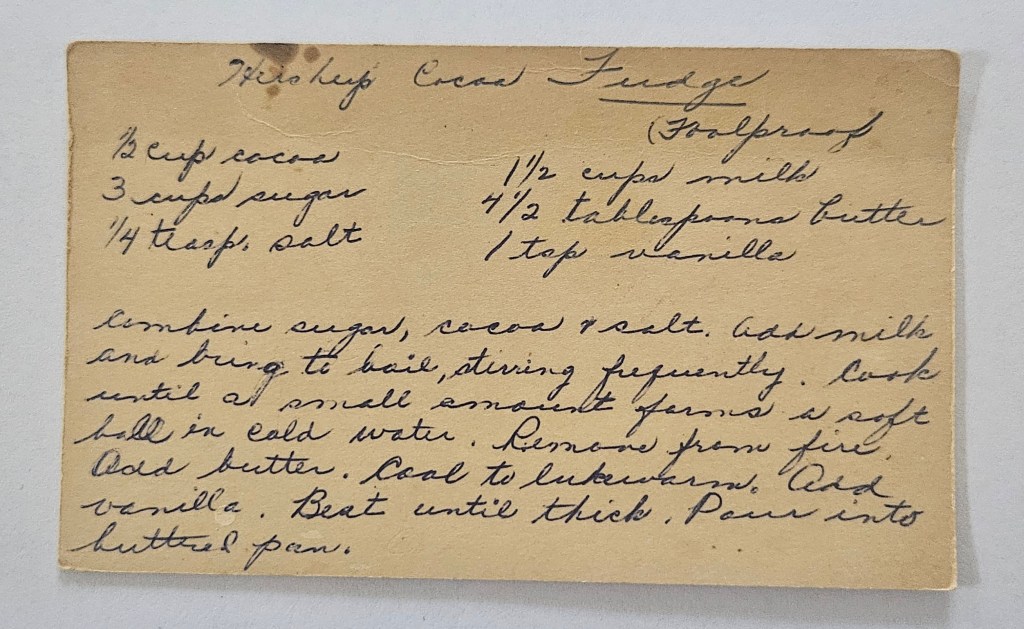 Hersheys Cocoa Fudge
(Foolproof
1/2 cup cocoa
3 cups sugar
1/4 teasp. salt
1 1/2 cups milk
4 1/2 tablespoons butter
1 tsp vanilla
Combine sugar, cocoa & salt. Add milk
and bring to boil, stirring frequently. Cook
until a small amount forms a soft
ball in cold water. Remove from fire.
Add butter. Cool to lukewarm. Add
vanilla. Beat until thick. Pour into
buttred pan.